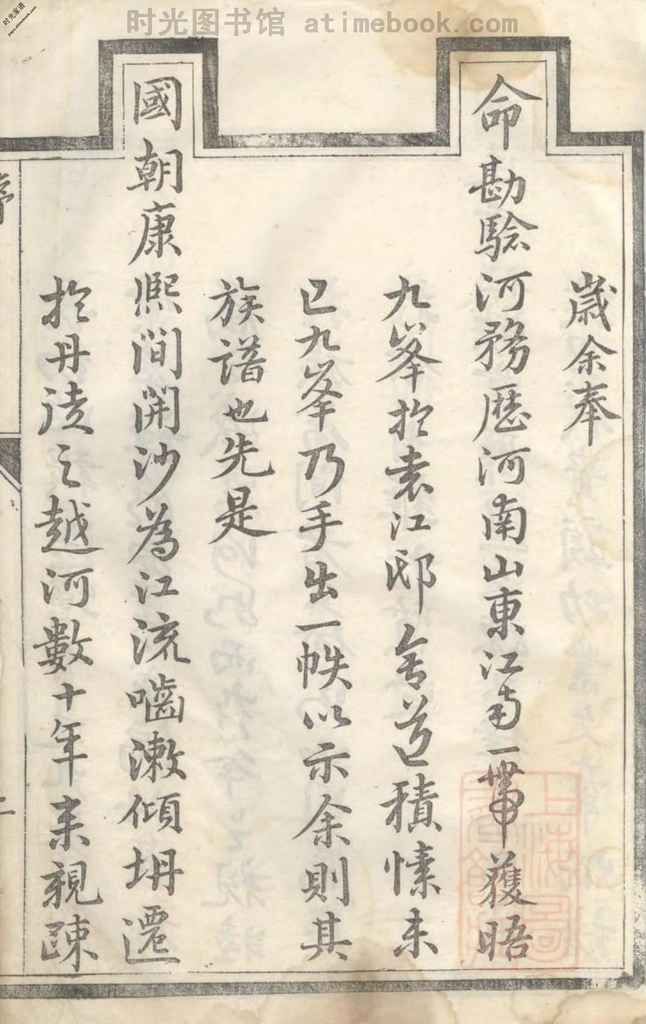 时光图书馆 atimebook.com
歲余奉
命勘騐河務歷河南山東江南一帶獲晤
九峯扵袁江邸舍道積愫未
已九峯乃手出一帙以示余則其
族譜也先是
國朝康熙間開沙為江流嚙潄傾坍遷
扵丹徒之越河數十年来親疎
序
二